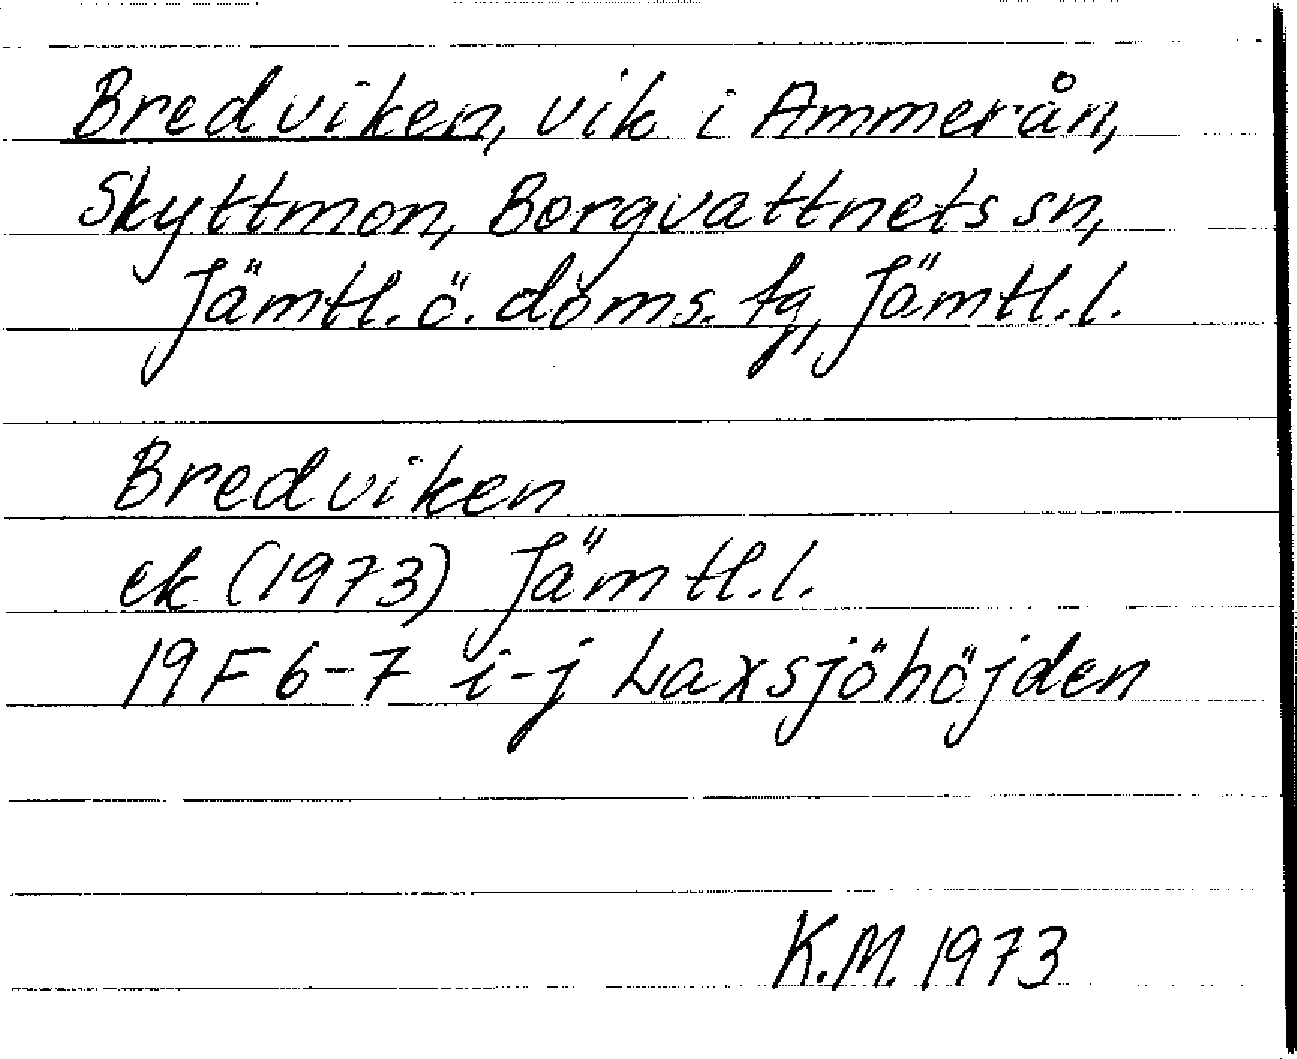 Bredviken, vik i Ammerån,
Skyttmon, Borgvattnets sn,
Jämtl. ö. doms. tg, Jämtl. l.
Bredviken
ek (1973) Jämtl. l.
19 F 6-7 i-j Laxsjöhöjden
K.M. 1973